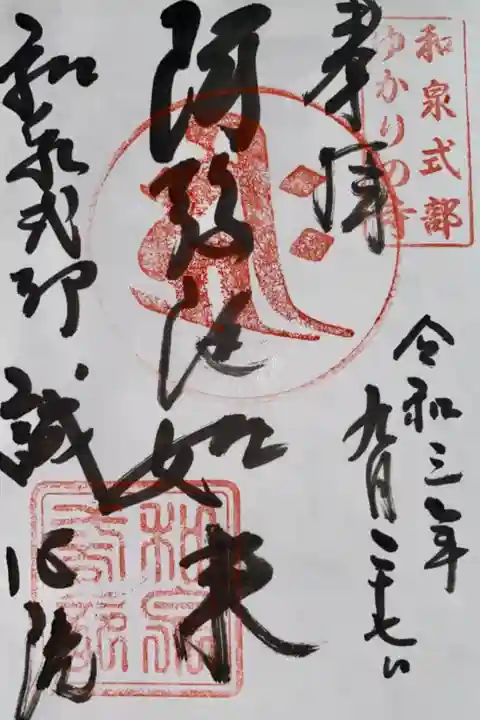 和泉式部
ゆかりの寺
奉拝
令和三年
九月二十七日
阿弥陀如来
和泉式部
誠心院